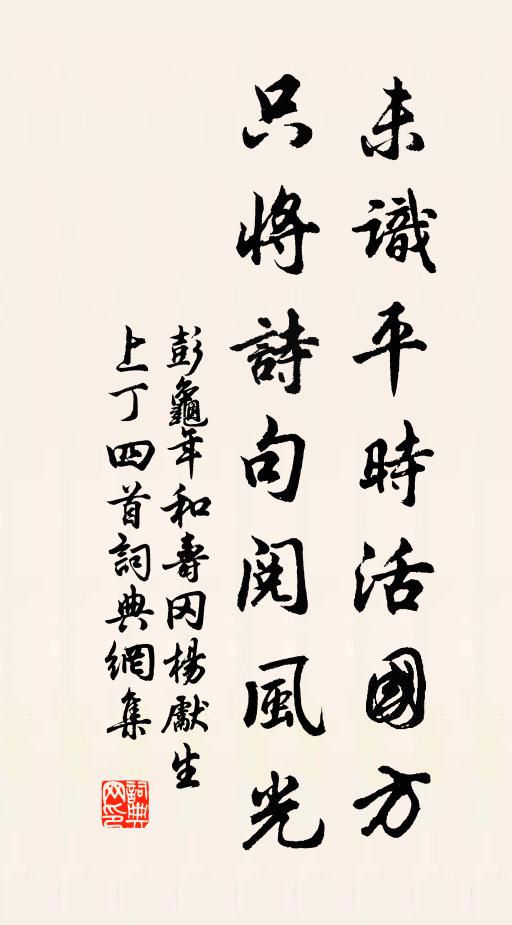 未識平時活國方
只將詩句閱風光
彭龜年和壽冈楊獻生
上丁四首詞典網集
詞典
网印